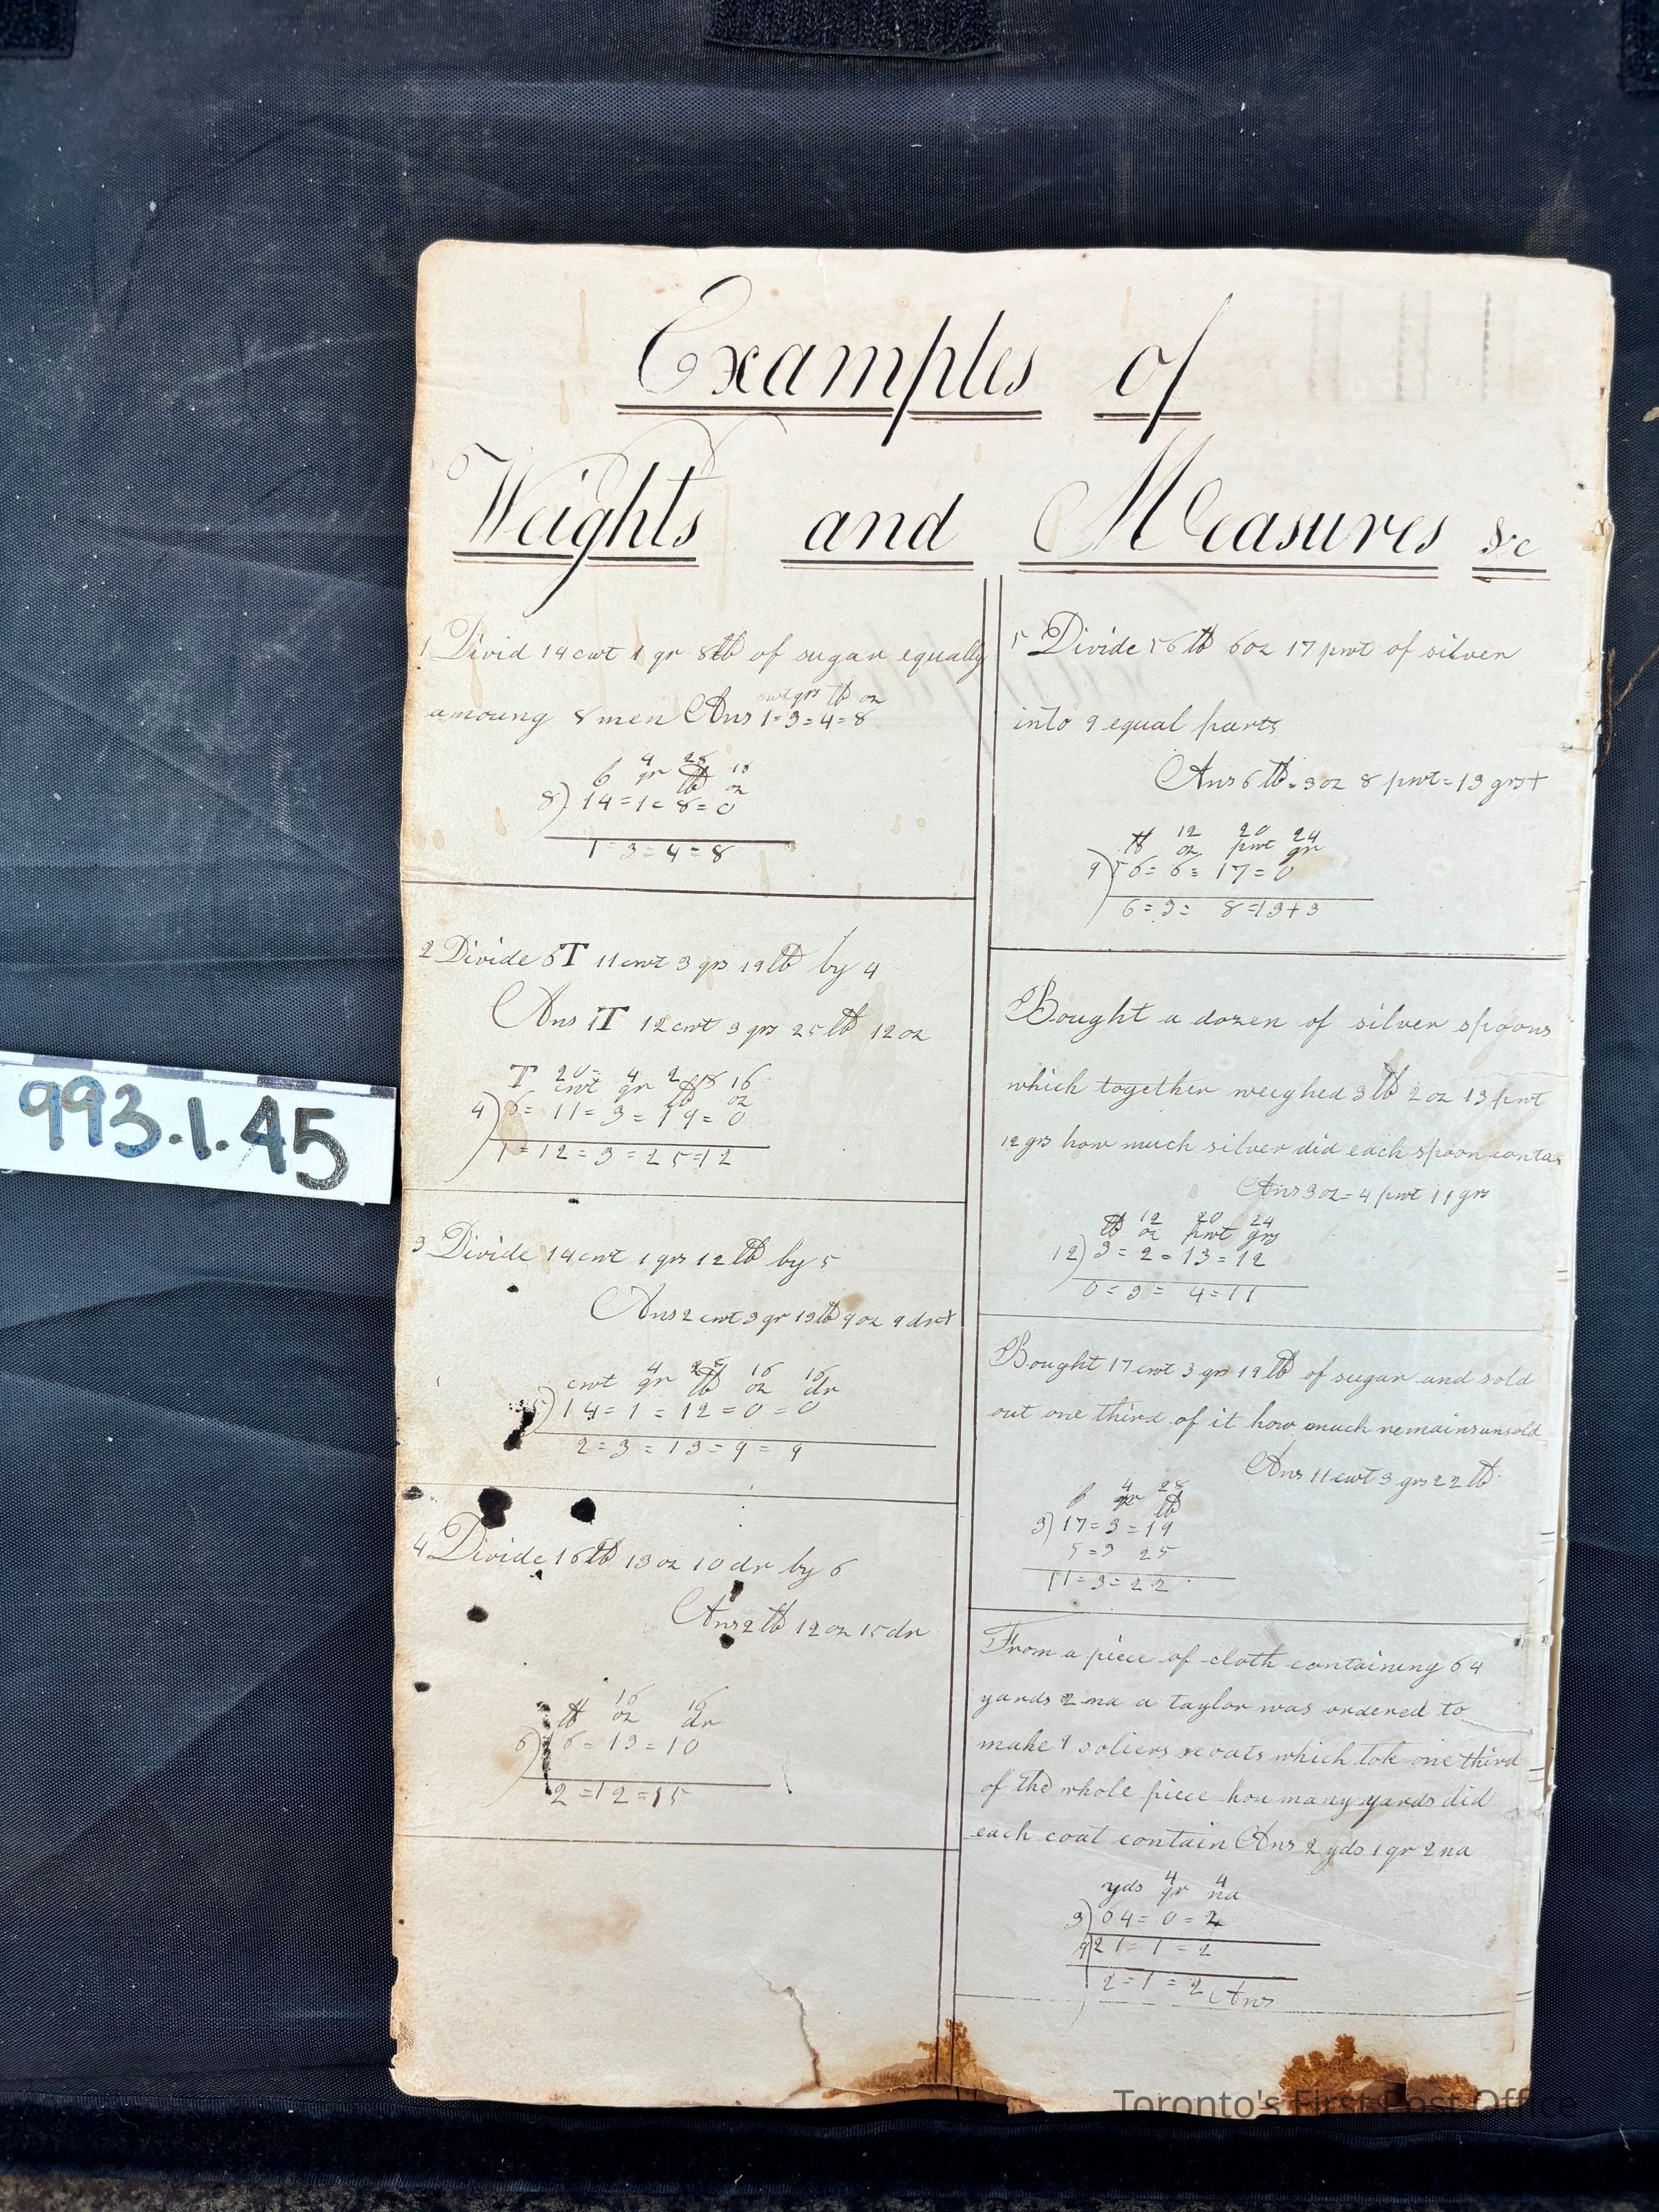 Examples of
Weights and Measures &c
1 Divid 14 cwt 1 qr 8 lb of sugar equally
cwt qrs lb oz
amoung 8 men Ans 1=3=4=8
4 28 16
qr lb oz
8) 14=1=8=0
1=3=4=8
2 Divide 6T 11 cwt 3 qrs 19 lb by 4
Ans 1T 12 cwt 3 qrs 25 lb 12 oz
T 20 4 28 16
cwt qr lb oz
4) 6=11=3=19=0
1=12=3=25=12
3 Divide 14 cwt 1 qrs 12 lb by 5
Ans 2 cwt 3 qr 13 lb 9 oz 9 drs+
4 28 16 16
cwt qr lb oz dr
5) 14=1=12=0=0
2=3=13=9=9
4 Divide 16 lb 13 oz 10 dr by 6
Ans 2 lb 12 oz 15 dr
16 16
lb oz dr
6) 16=13=10
2=12=15
5 Divide 56 lb 6 oz 17 pwt of silver
into 9 equal parts
Ans 6 lb=3 oz 8 pwt=13 grs+
12 20 24
lb oz pwt gr
9) 56=6=17=0
6=3=8=13+3
Bought a dozen of silver spoons
which together weighed 3 lb 2 oz 13 pwt
12 grs how much silver did each spoon contai
Ans 3 oz=4 pwt 11 grs
12 20 24
lb oz pwt grs
12) 3=2=13=12
0=3=4=11
Bought 17 cwt 3 qrs 19 lb of sugar and sold
out one third of it how much remains unsold
Ans 11 cwt 3 qrs 22 lb
4 28
qr lb
3) 17=3=19
5=3 25
11=3=22
From a piece of cloth containing 64
yards 2 na a taylor was ordered to
make 9 soliers coats which tok one third
of the whole piece hou many yards did
each coat contain Ans 2 yds 1 qr 2 na
4 4
yds qr na
3) 64=0=2
9 21=1=2
2=1=2 Ans
993.1.45
Toronto's First Post Office